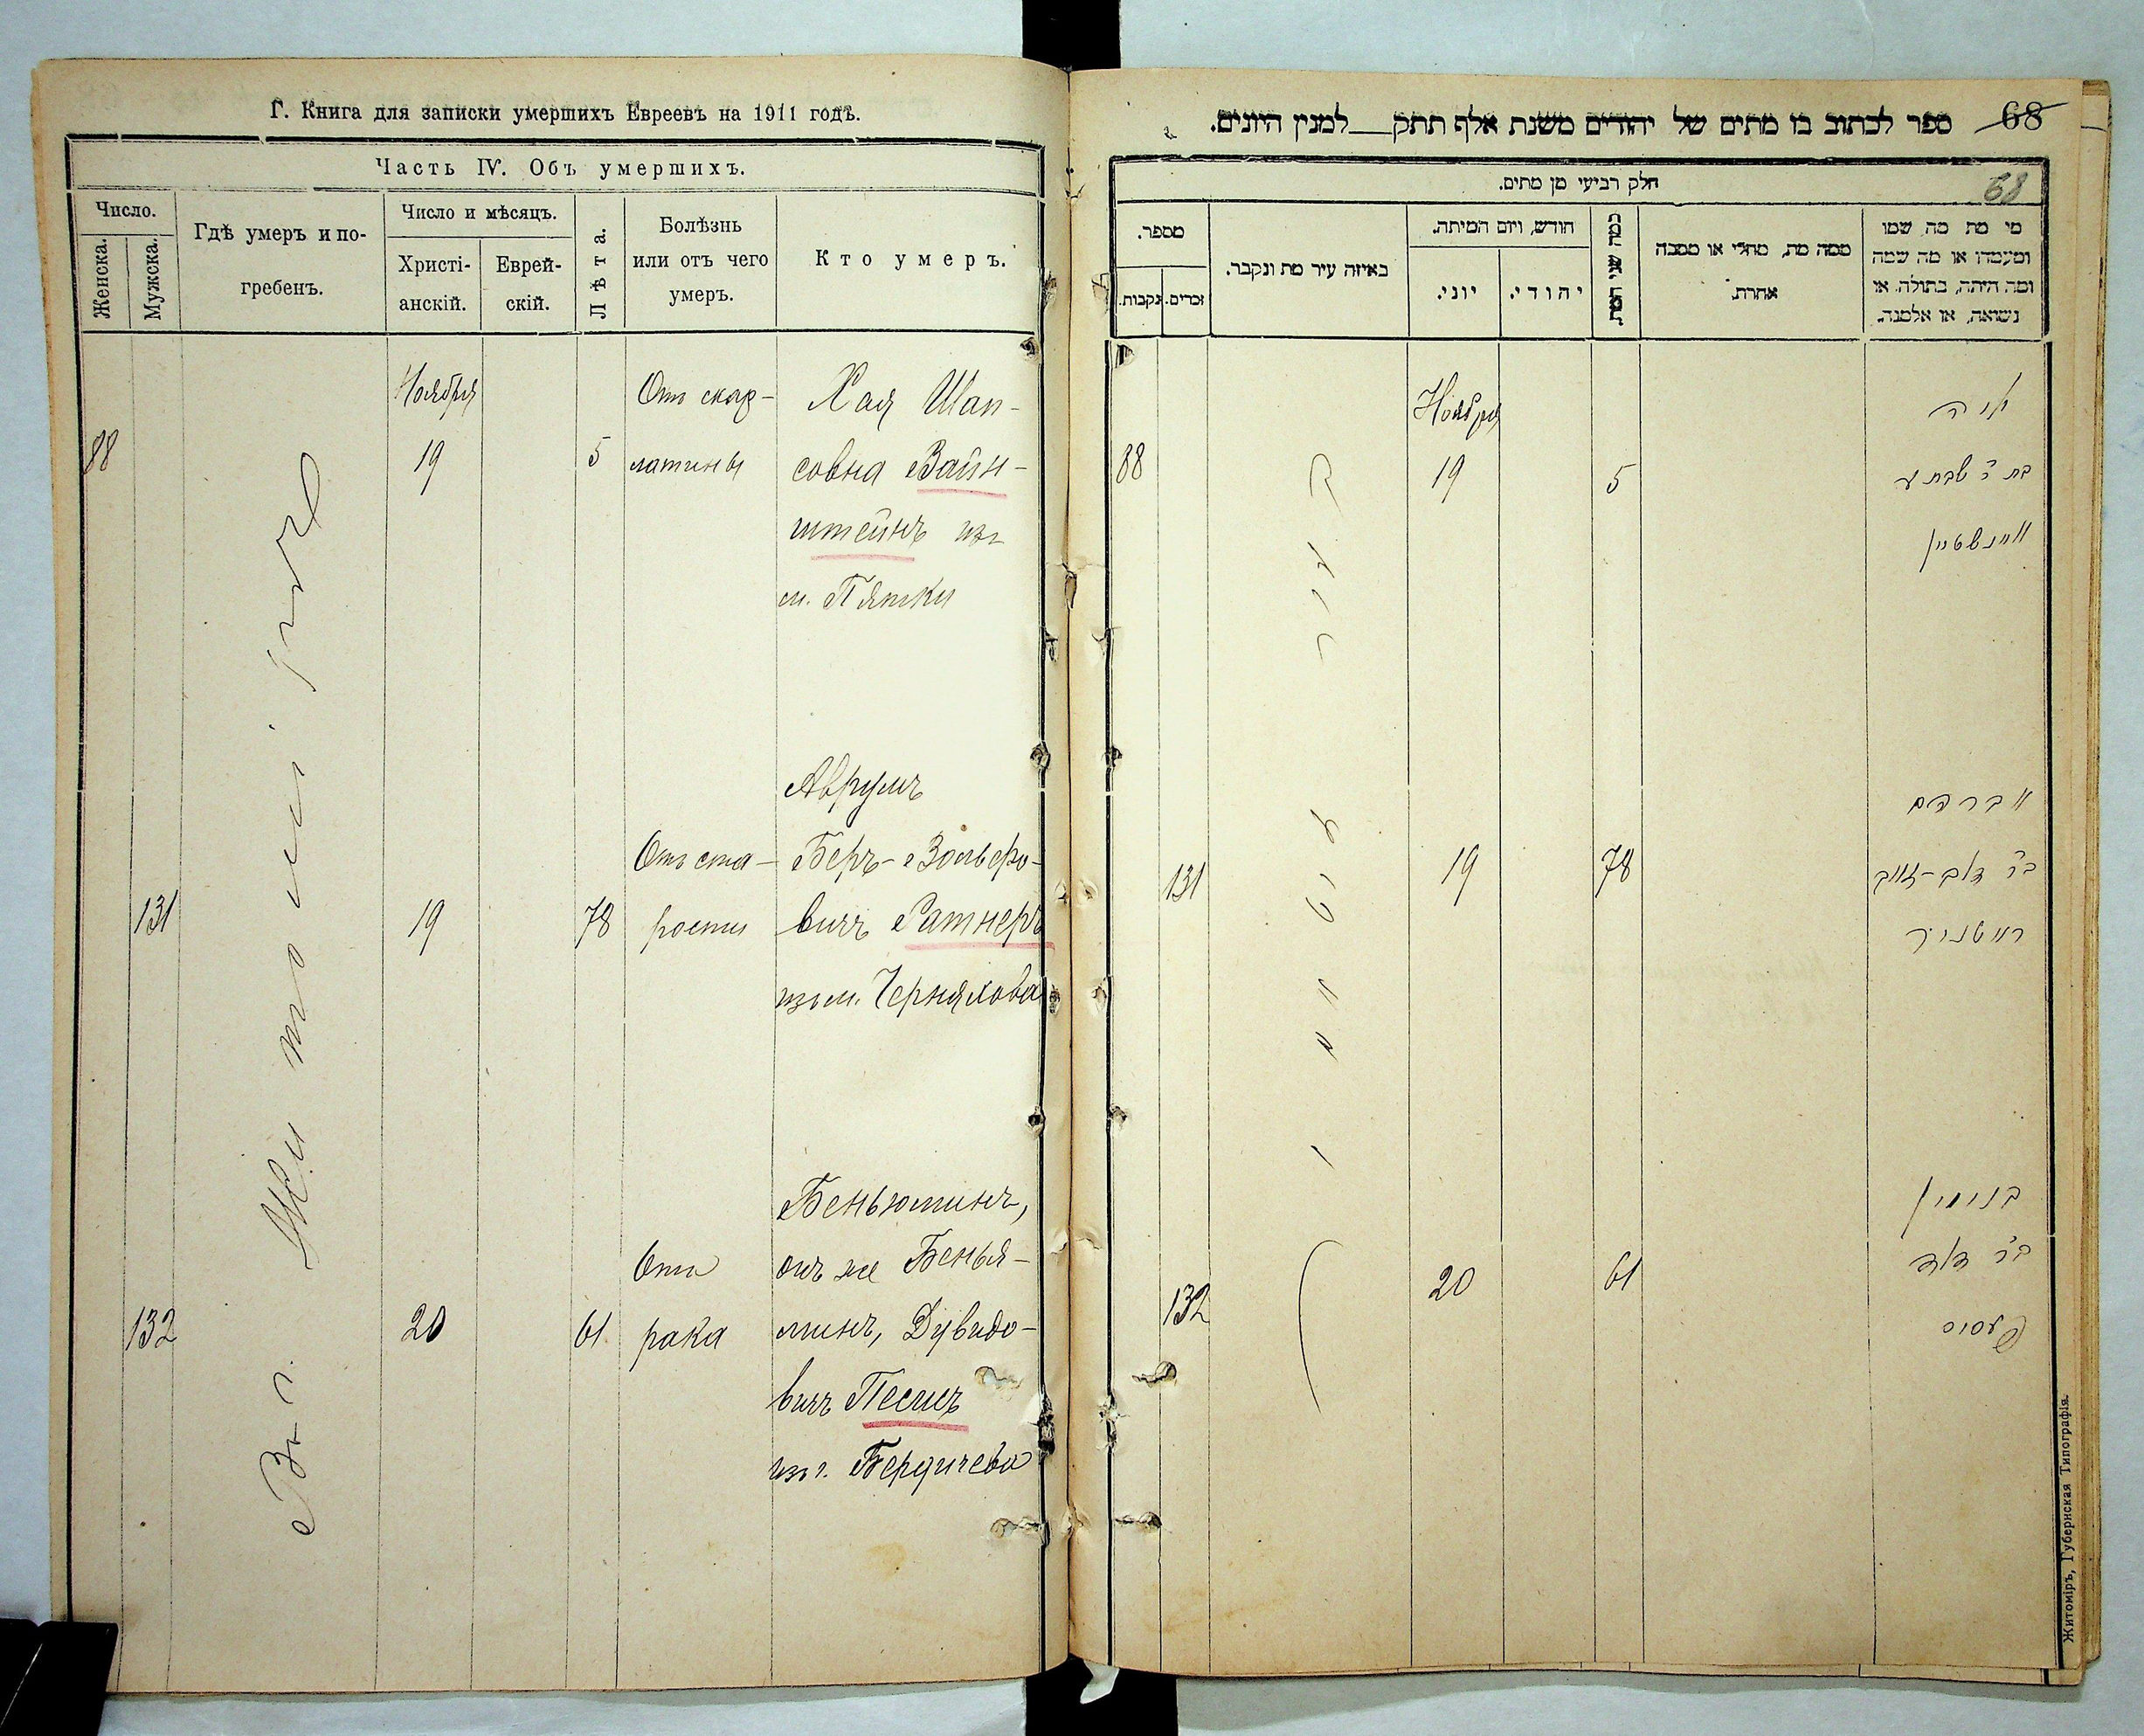 Г. Книга для записки умершихъ Евреевъ на 1911 годъ.
Часть IV. Объ умершихъ.
Число.
Женска.
Мужска.
Гдѣ умеръ и по-
гребенъ.
Число и мѣсяцъ.
Христі-
анскій.
Еврей-
скій.
Лѣта.
Болѣзнь
или отъ чего
умеръ.
Кто умеръ.
Въ г. Житомірѣ
Ноября
88
19
5
Отъ скар-
латины
Хая Шап-
совна Вайн-
штейнъ изъ
м. Пятки
131
19
78
Отъ ста-
рости
Аврумъ
Беръ-Вольфо-
вичъ Ратнеръ
изъ м. Черняхова
132
20
61
Отъ
рака
Беньюминъ,
онъ же Бенья-
минъ, Дувидо-
вичъ Песисъ
изъ г. Бердичева
ספר לכתוב בו מתים של יהודים משנת אלף תתק למנין היונים.
68
חלק רביעי מן מתים.
68
מספר.
נקבות.
זכרים.
באיזה עיר מת ונקבר.
חודש, ויום המיתה.
יוני.
יהודי.
כמה שני המת
ממה מת, מחלי או מסבה
אחרת.
מי מת מה שמו
ומעמדו או מה שמה
ומה היתה, בתולה או
נשואה, או אלמנה.
Ноября
88
19
5
חיה
בת ר שבתי
וויינשטיין
131
19
78
אברהם
בר דוב-זאב
ראטנער
132
20
61
בנימין
בר דוד
פעסיס
Житоміръ, Губернская Типографія.